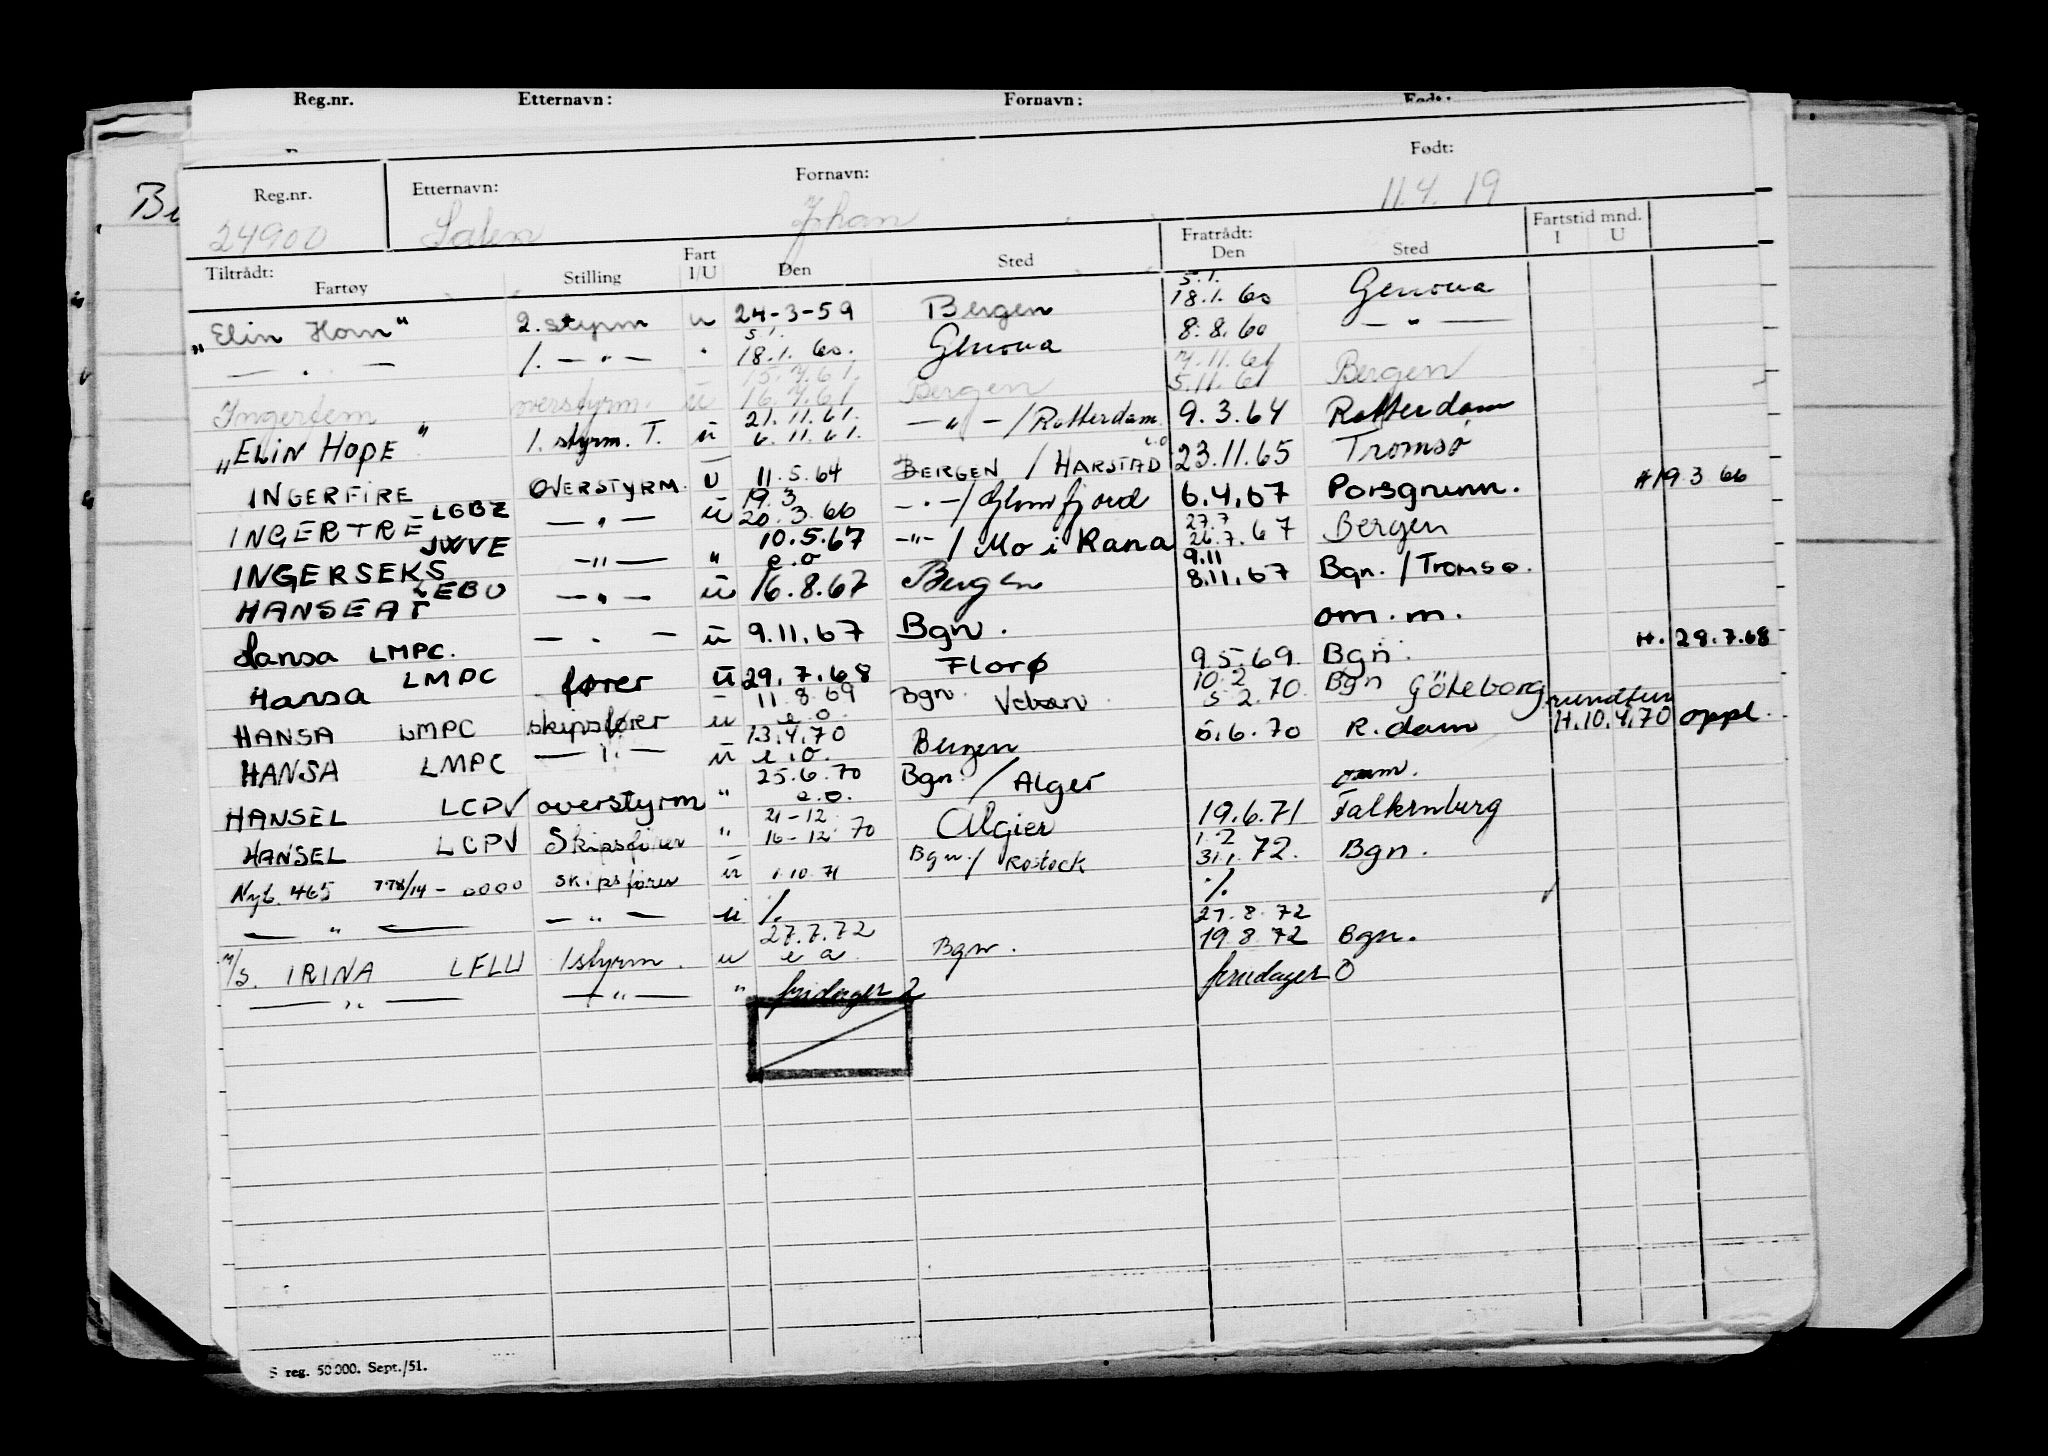 Reg.nr. Etternavn: Fornavn: Født:
Reg.nr. Etternavn: Fornavn: Født:
24900 Salen Johan 11.4.19
Tiltrådt: Fartøy Stilling Fart I/U Den Sted Fratrådt: Den Sted Fartstid mnd. I U
"Elin Horn" 2. styrm u 24-3-59 Bergen 5.1. 18.1.60 Genova
— " — 1. — " — " 5.1. 18.1.60. Genova 8.8.60 — " —
Ingerfem overstyrm. u 15.4.61. 16.4.61 Bergen 4.11.61 5.11.61 Bergen
"ELIN HOPE" 1. styrm. T. u 21.11.61. 6.11.61. — " — / Rotterdam 9.3.64 Rotterdam
INGERFIRE OVERSTYRM. U 11.5.64 BERGEN / HARSTAD 23.11.65 Tromsø
INGERTRE LGBZ — " — u 19.3 20.3.66 — " — / Glomfjord 6.4.67 Porsgrunn. H 19.3 66
INGERSEKS JWVE — " — " 10.5.67 e.o — " — / Mo i Rana 27.7 26.7.67 Bergen
HANSEAT LEBU — " — u 16.8.67 Bergen 9.11 8.11.67 Bgn. / Tromsø.
Hansa LMPC. — " — u 9.11.67 Bgn. om.m.
Hansa LMPC fører u 29.7.68 Florø 9.5.69. Bgn. H. 28.7.68
HANSA LMPC skipsfører u 11.8.69 e.o. Bgn. 10.2 5.2.70. Bgn Göteborg rundtur
HANSA LMPC — " — u 13.4.70 e.o. Bergen 5.6.70 R.dam H.10.4.70 oppl.
HANSEL LCPV overstyrm " 25.6.70 e.o. Bgn. / Alger omm.
HANSEL LCPV Skipsfører " 21-12 16-12 70 Algier 19.6.71 Falkenberg
Nyb. 465 778/14 - 0000 skipsfører u 1.10.71 Bgn. / Rostock 1.2 31.1.72. Bgn.
— " — — " — u % %
M/S. IRINA LFLU 1 styrm. u 27.7.72 e a. Bgn. 27.8.72 19.8.72 Bgn.
— " — — " — " fridager 2 fridager 0
S reg. 50 000. Sept./51.